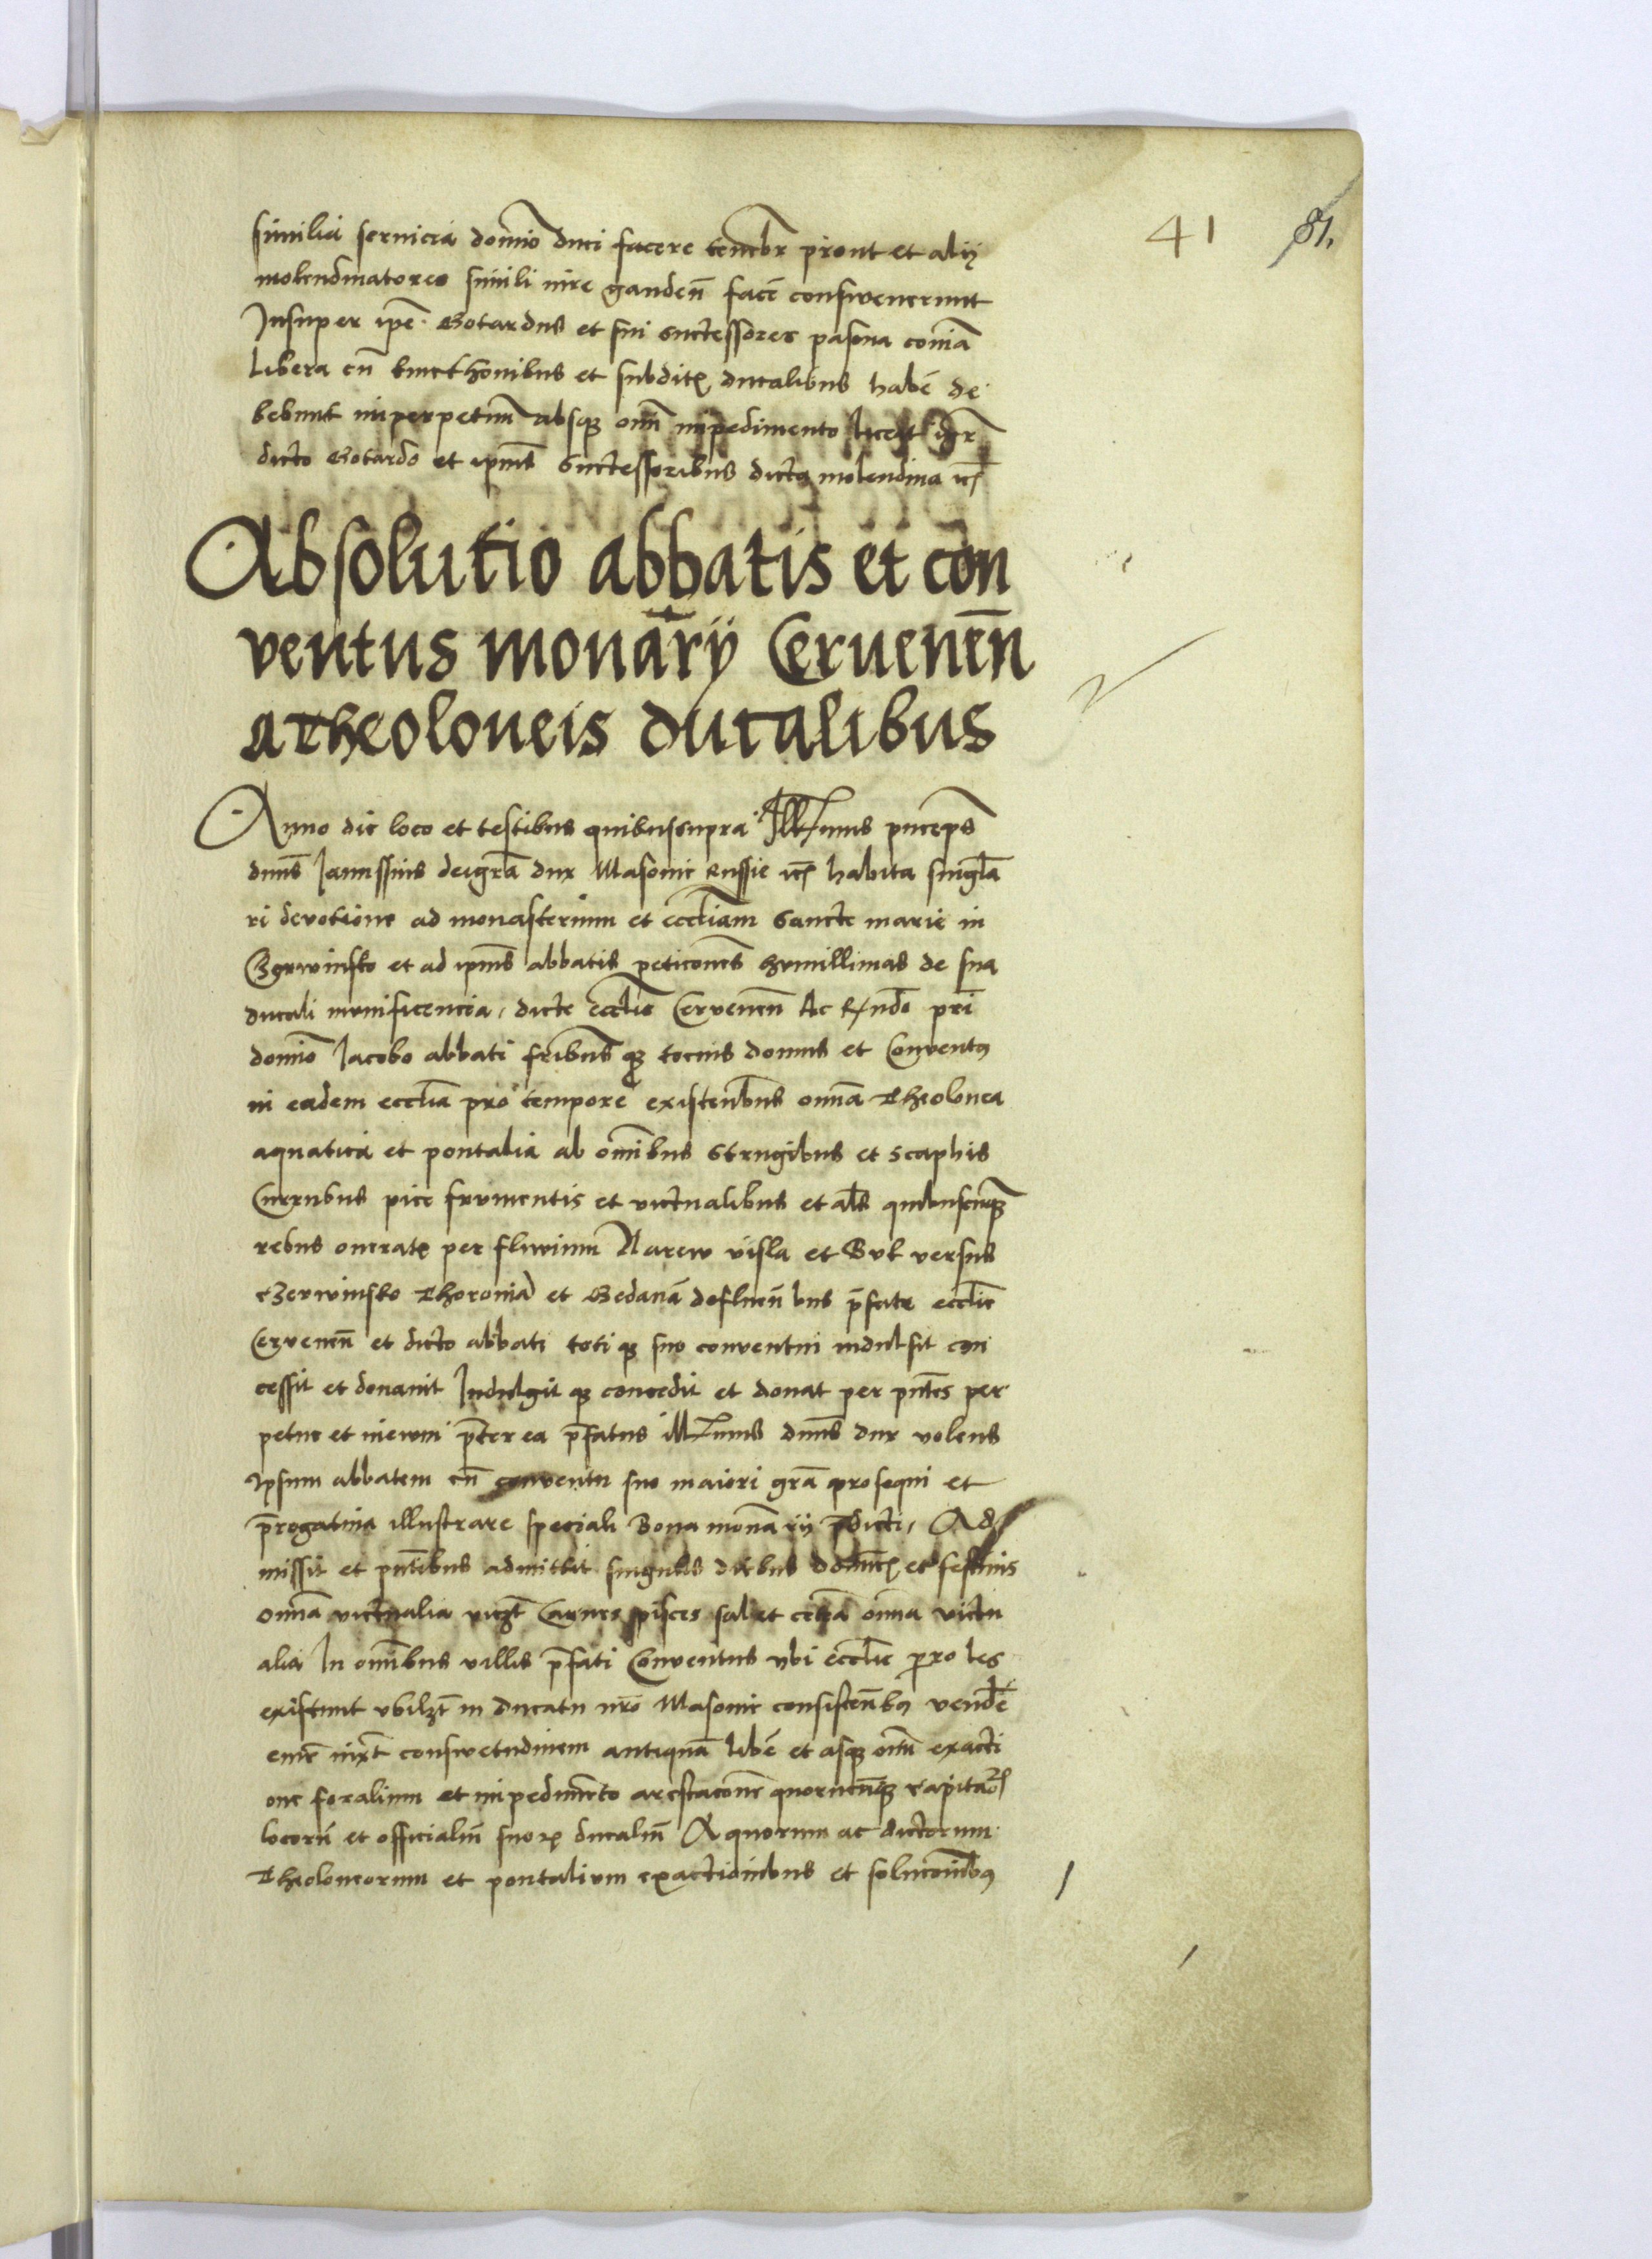 41 81.
similia seruicia domĩo duci facere teneb̃r prout et alij
molendinatores simili iure gauden̄ facē conswenerunt
Insuper ip̄e Gotardus et sui successores pascua com̄ia
libera cū kmethonibus et subditꝭ ducalibus habē de
bebunt inperpetuū absqꝫ om̄i inpedimento
dicto Gotardo et ip̄ius successoribus dicta molendina
Absolutio abbatis et con
ventus monar̄ij Ceruenen̄
a theoloneis ducalibus
Anno die loco et testibus quibus supra Ill̄mus princeps
dn̄us Janussius dei gr̄a dux Masouie Russie habita singl̄a
ri devotione ad monasterium et eccl̄iam Sancte marie in
Czerwinsko et ad ip̄ius abbatis peticōnes humillimas de sua
ducali munificencia, dicte eccl̄ie Cervenen̄ Ac R̄ndo pr̄i
domĩo Jacobo abbati fr̄ibusqꝫ tocius domus et Conventus
in eadem eccl̄ia pro tempore existen̄bus om̄ia Theolonea
aquatica et pontalia ab om̄ibus strugibus et scaphis
Cineribus pice frumentis et victualibus et al̄s quibuscūqꝫ
rebus oneratꝭ per fluvium Narew visla et Buk versus
Czerwinsko Thoronia et Gedanā defluen̄bus p̄fate eccl̄ie
Cervenen̄ et dicto abbati totiqꝫ suo conventui indulsit con
cessit et donauit Indulgitqꝫ concedit et donat per pn̄tes per
petue et in ewū p̄ter ea p̄fatus ill̄mus dn̄us dux volens
ipsum abbatem cū conventu suo maiori gr̄a prosequi et
p̄rogatiua illustrare speciali Bona monar̄ij p̄dicti, Ad
missit et pn̄tibus admittit singulis diebus domīcꝭ et festiuis
om̄ia victualia vicꝫt Carnes pisces sal et cet̄a om̄ia victu
alia In om̄ibus villis p̄fati Conventus vbi eccl̄ie parro les
existunt vbilꝫt in ducatu nr̄o Masouie consisten̄bus vendē
emē iuxt̄ conswetudinem antiquā libē et absqꝫ om̄i exacti
one foralium et inpedimēto arestacōne quorumcūqꝫ capitan̄
locorū et officialiū suoꝝ ducaliū A quorum ac dictorum
Theoloneorum et pontalium exactionibus et solucōnibus